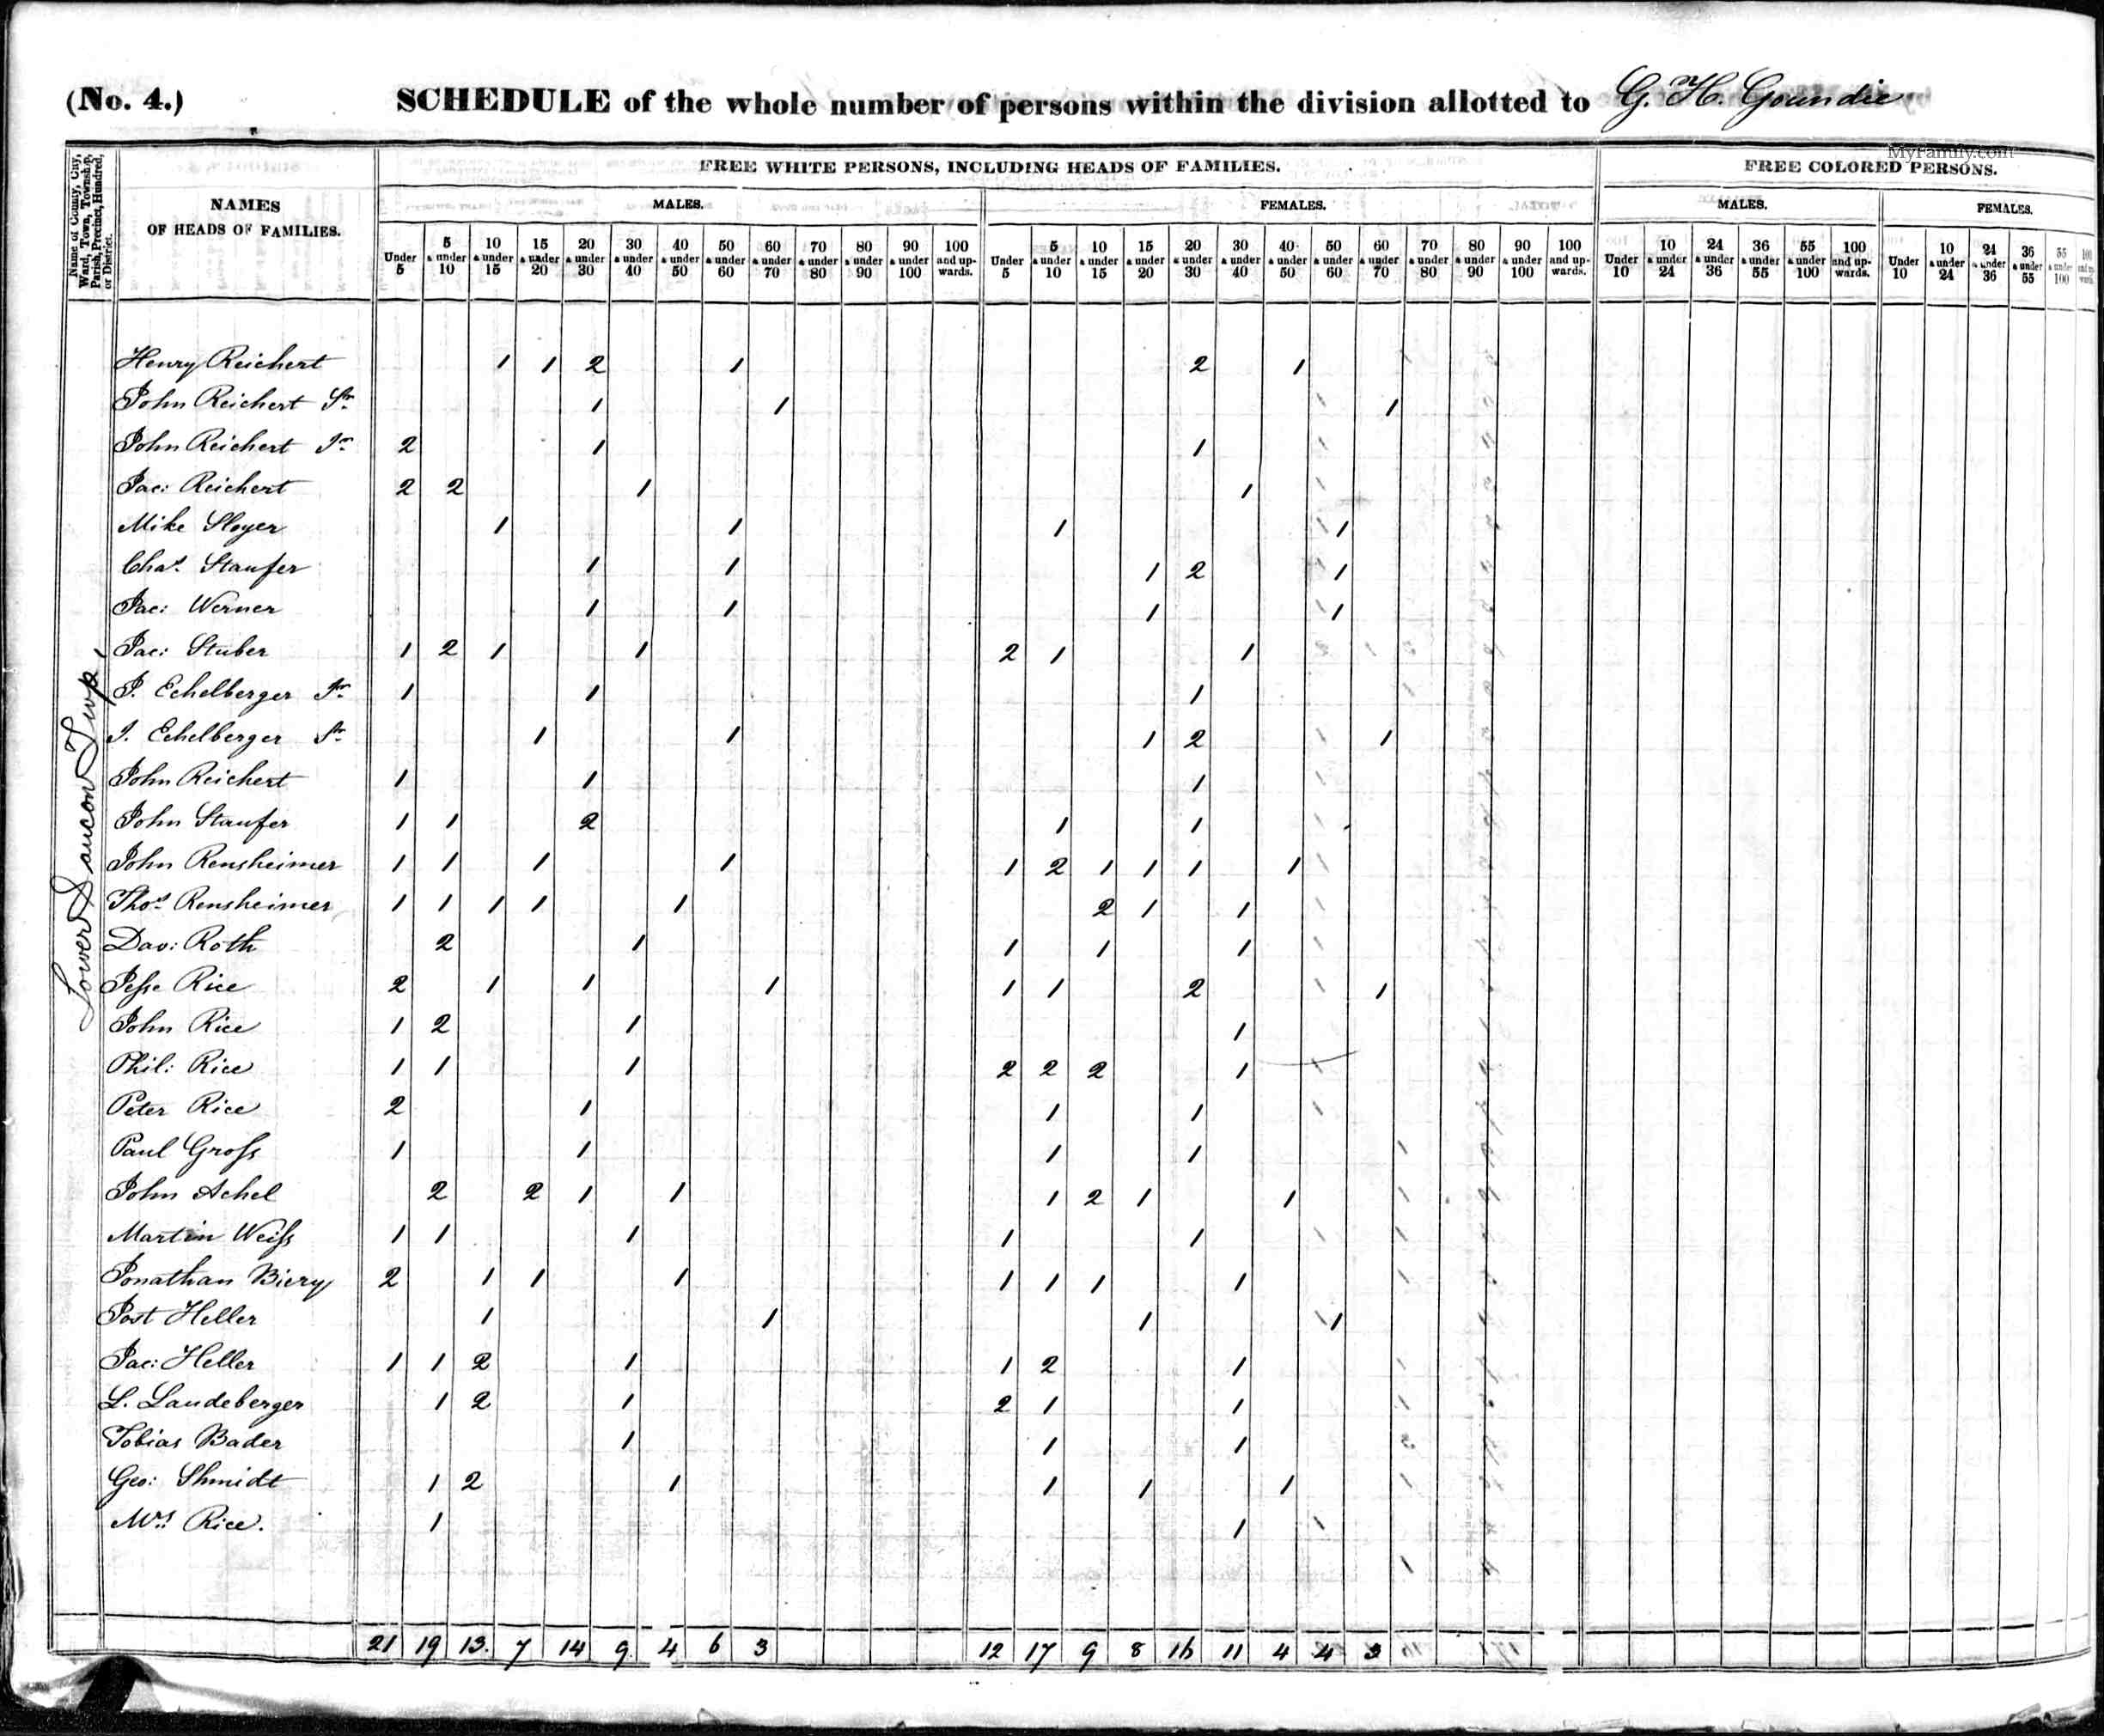 (No. 4.) SCHEDULE of the whole number of persons within the division allotted to G. H. Goundie
MyFamily.com
Name of County, City, Ward, Town, Township, Parish, Precinct, Hundred, or District.
NAMES OF HEADS OF FAMILIES.
FREE WHITE PERSONS, INCLUDING HEADS OF FAMILIES. FREE COLORED PERSONS.
MALES. FEMALES. MALES. FEMALES.
Under 5 5 & under 10 10 & under 15 15 & under 20 20 & under 30 30 & under 40 40 & under 50 50 & under 60 60 & under 70 70 & under 80 80 & under 90 90 & under 100 100 and upwards. Under 5 5 & under 10 10 & under 15 15 & under 20 20 & under 30 30 & under 40 40 & under 50 50 & under 60 60 & under 70 70 & under 80 80 & under 90 90 & under 100 100 and upwards. Under 10 10 & under 24 24 & under 36 36 & under 55 55 & under 100 100 and upwards. Under 10 10 & under 24 24 & under 36 36 & under 55 55 & under 100 100 and upwards.
Lower Saucon Twp.
Henry Reichert 1 1 2 1 2 1
John Reichert Sr. 1 1 1
John Reichert Jr. 2 1 1
Jac: Reichert 2 2 1 1
Mike Sloyer 1 1 1 1
Chas. Staufer 1 1 1 2 1
Jac: Werner 1 1 1 1
Jac: Stuber 1 2 1 1 2 1 1
J. Echelberger Jr. 1 1 1
J. Echelberger Sr. 1 1 1 2 1
John Reichert 1 1 1
John Staufer 1 1 2 1 1
John Rensheimer 1 1 1 1 1 2 1 1 1 1
Thos. Rensheimer 1 1 1 1 1 2 1 1
Dav: Roth 2 1 1 1 1
Jesse Rice 2 1 1 1 1 1 2 1
John Rice 1 2 1 1
Phil: Rice 1 1 1 2 2 2 1
Peter Rice 2 1 1 1
Paul Gross 1 1 1 1
John Achel 2 2 1 1 1 2 1 1
Martin Weiss 1 1 1 1 1
Jonathan Biery 2 1 1 1 1 1 1 1
Jost Heller 1 1 1 1
Jac: Heller 1 1 2 1 1 2 1
L. Laudeberger 1 2 1 2 1 1
Tobias Bader 1 1 1
Geo: Shmidt 1 2 1 1 1 1
Mrs. Rice. 1 1
21 19 13. 7 14 9 4 6 3 12 17 9 8 16 11 4 4 3